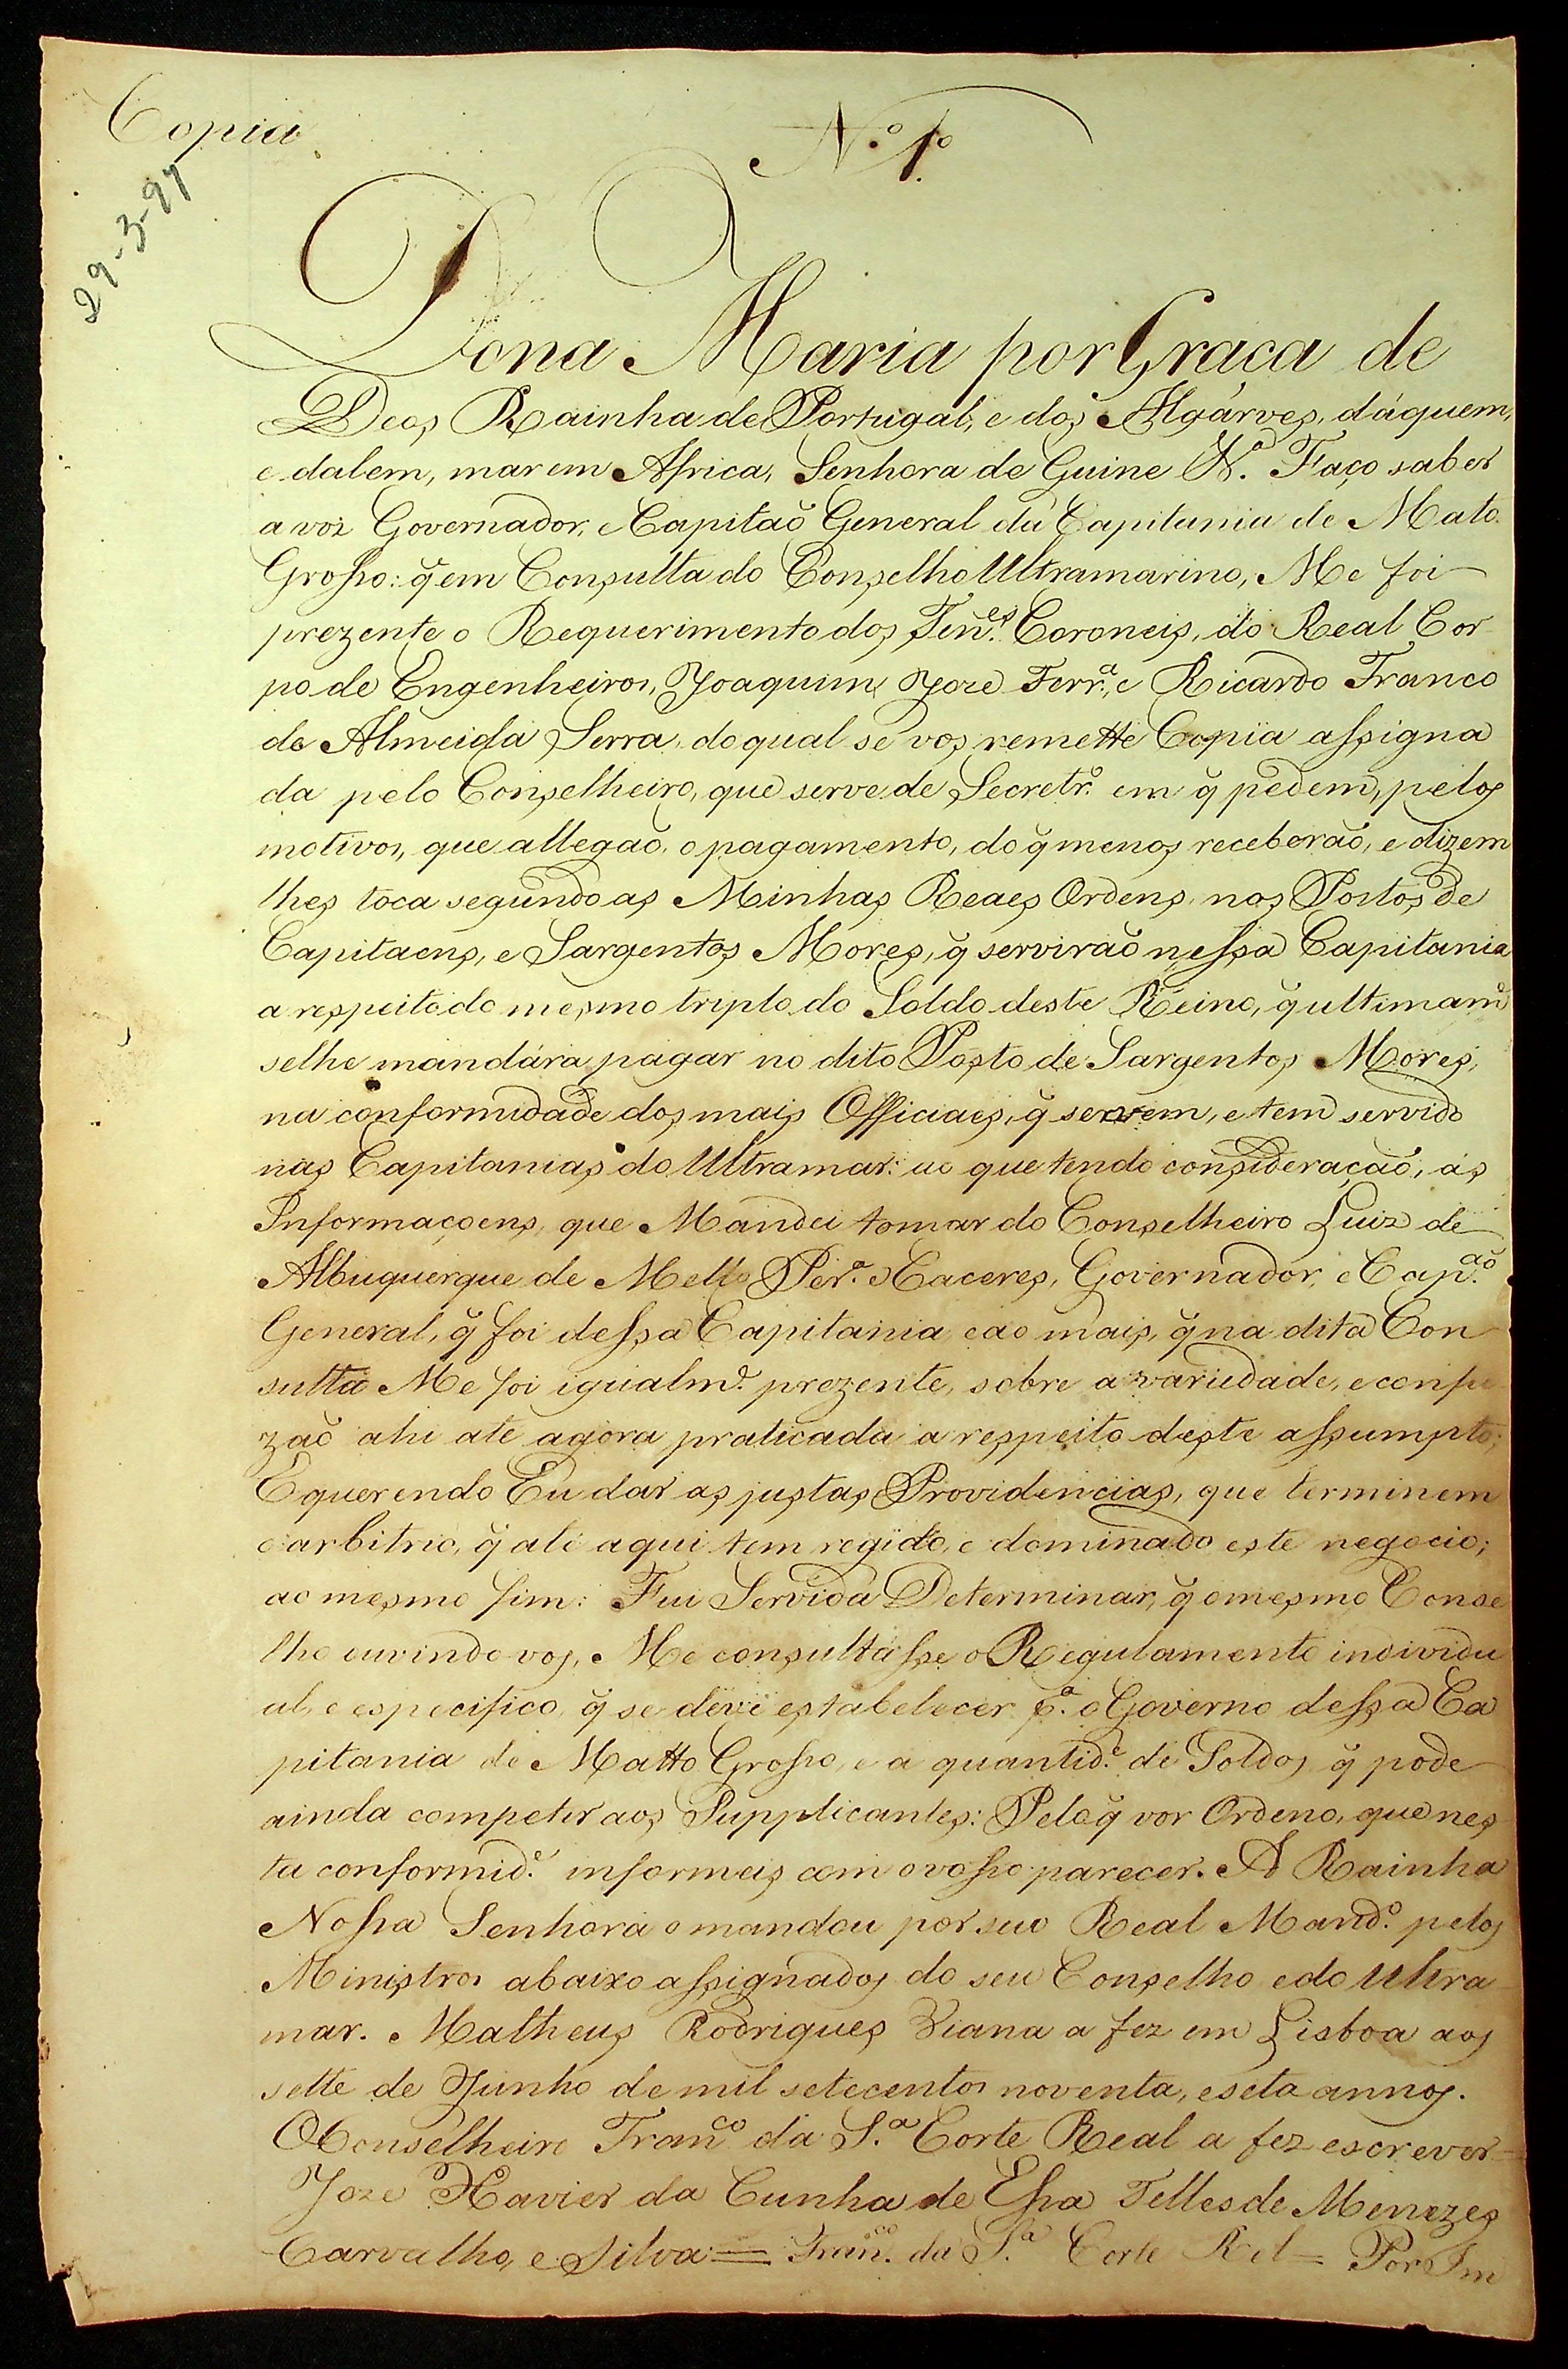 Copia
N.º 1º
29-3-97
Dona Maria por Graça de
Deos Rainha de Portugal, e dos Algárves, dáquem,
e dalem, mar em Africa, Senhora de Guine &.ª Faço saber
a voz Governador, e Capitaõ General da Capitania de Mato
Grosso: q̃ em Consulta do Conselho Ultramarino, Me foi
prezente o Requerimento dos Ten.es Coroneis, do Real Cor
po de Engenheiros, Joaquim Joze Ferr.ª, e Ricardo Franco
de Almeida Serra, do qual se vos remette Copia assigna
da pelo Conselheiro, que serve de Secretr.º em q̃ pedem, pelos
motivos, que allegaõ, o pagamento, do q̃ menos receberaõ, e dizem
lhes toca segundo as Minhas Reaes Ordens, nos Postos de
Capitaens, e Sargentos Mores, q̃ serviraõ nessa Capitania
a respeito do mesmo triplo do Soldo deste Reino, q̃ ultimam.e
selhe mandára pagar no dito Posto de Sargentos Mores,
na conformidade dos mais Officiaes, q̃ servem, e tem servido
nas Capitanias do Ultramar: ao que tendo consideraçaõ, ás
Informaçoens, que Mandei tomar do Conselheiro Luiz de
Albuquerque de Mello Per.ª e Caceres, Governador, e Cap.aõ
General, q̃ foi dessa Capitania e ao mais, q̃ na dita Con
sulta Me foi igualm.e prezente, sobre a variedade, e confu
zaõ ahi ate agora praticada a respeito deste assumpto;
E querendo Eu dar as justas Providencias, que terminem
o arbitrio, q̃ até aqui tem regido, e dominado este negocio;
ao mesmo fim: Fui Servida Determinar, q̃ o mesmo Conse
lho ouvindo vos, Me consultásse o Regulamento individu
al, e especifico, q̃ se deve estabelecer p.ª o Governo dessa Ca
pitania de Matto Grosso, e a quantid.e de Soldos q̃ pode
ainda competir aos Supplicantes: Pelo q̃ vos Ordeno, que nes
ta conformid.e informeis com o vosso parecer. A Rainha
Nossa Senhora o mandou por seu Real Mand.º pelos
Ministros abaixo assignados do seu Conselho e do Ultra
mar. Matheus Rodrigues Viana a fez em Lisboa aos
sette de Junho de mil setecentos noventa, e sete annos.
O Conselheiro Fran.co da S.ª Corte Real a fez escrever =
Joze Xavier da Cunha de Essa Telles de Menezes
Carvalho, e Silva = Fran.co da S.ª Corte Rel = Por Im